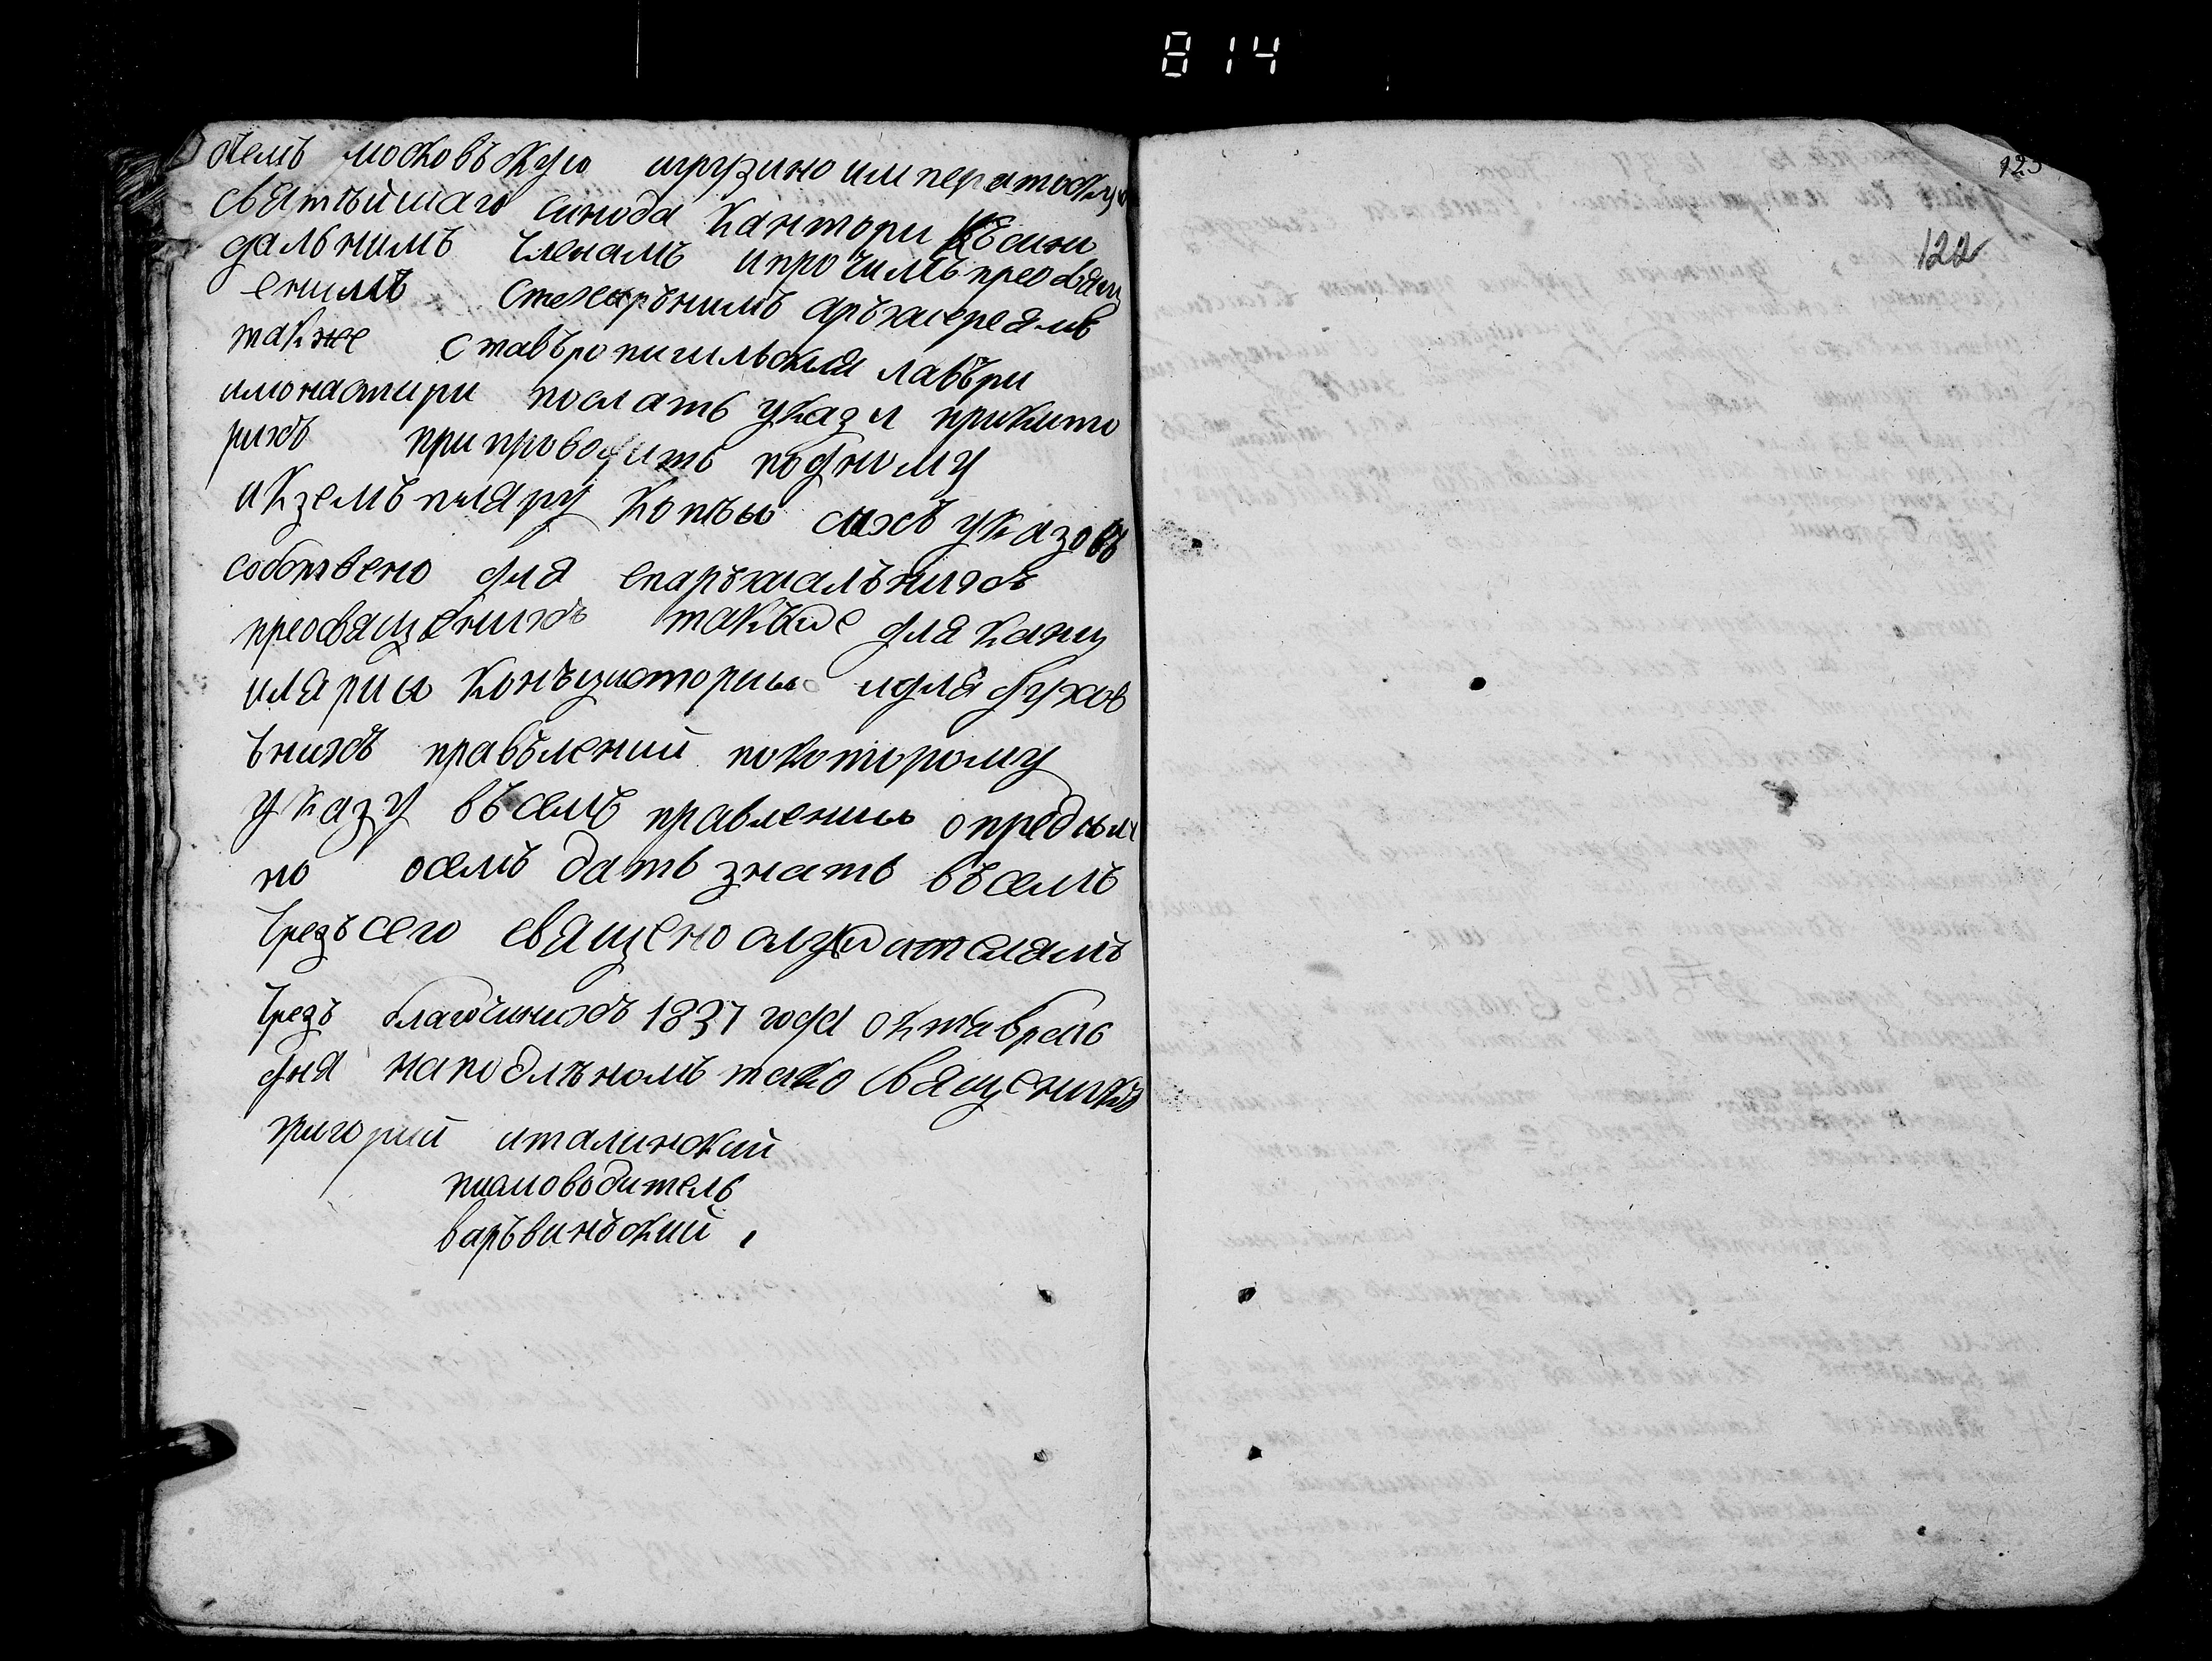 814
сќемъ московъскую игрузино императоскую
святѣйшаго синода канторы къ сино
дальнимъ членамъ и прочимъ преосвящ
енимъ епархърънимъ аръхиереямъ
также ставъропигильския лавъри
имонастири послать указы прикито
рихъ припроводить подниму
икземъпляру копъы сихъ указовъ
собствено для епаръхиалънихъ
преосвященихъ такъже для канц
иляриы конъзисториы идля духов
ънихъ правълений покоторому
указу въсемъ правлениы определе
но осемъ дать знать въсемъ
чрезъ сего священослужителямъ
чрезъ благочинихъ 1837 года октявраь
дня наподлъномъ тако священикъ
григорий италинский
писмоводитель
варъвинъский
123
122